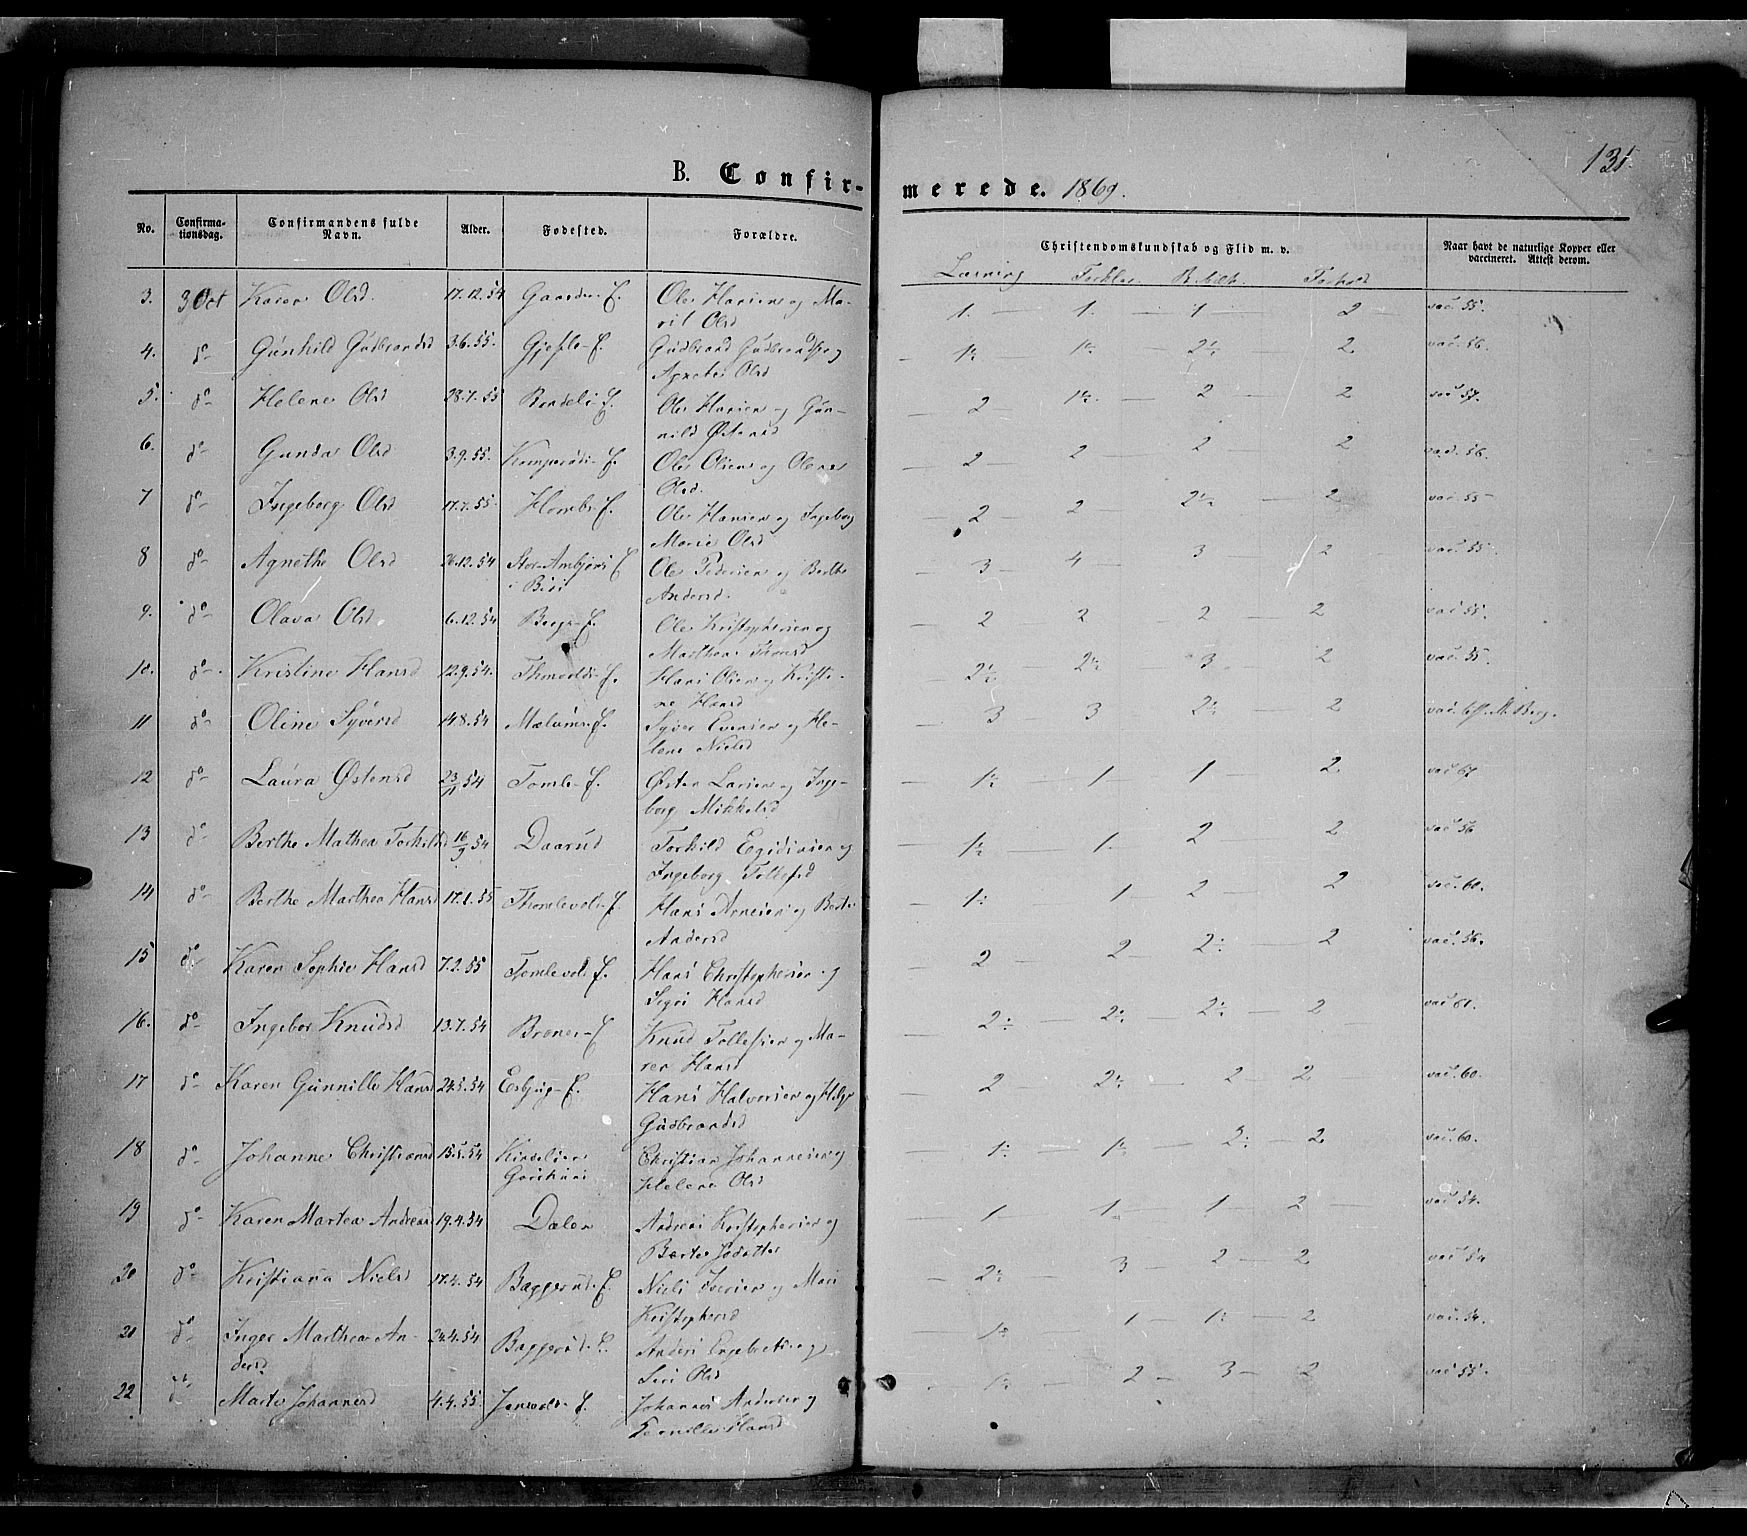 131.
B. Confir-
merede. 1869.
No. Confirma-tionsdag. Confirmandens fulde Navn. Alder. Fødested. Forældre. Christendomskundskab og Flid m. v. Naar havt de naturlige Kopper eller vaccineret. Attest derom.
Læsning Forhold
3. 3 Oct Karen Olsd. 17.12.54 E. Ole Hansen og Ma- 1. 1. 1 2 vac. 55.
rit Olsd
4. do Gunhild Gudbrandsd 3.6.55. Gjefle-E. Gudbrand og 1½ 1½ 2½ 2 vac. 56.
Agnete Olsd
5. do Helene Olsd 28.7.55 E. Ole Hansen og Gun- 2 1½. 2 2 vac. 57.
nild Østensd
6. do Gunda Olsd 3.9.55. E. Ole Olsen og Olene 2 2 2 2 vac. 56.
Olsd.
7 do Ingeborg Olsd 17.7.55. E. Ole Hansen og Ingeborg 2 2 2½ 2 vac. 55
Marie Olsd
8 do Agnethe Olsd 26.12.54 E Ole Pedersen og Berthe 3 4 3 2 vac. 55.
i Biri Andersd.
9. do Olava Olsd 6.12.54 E. Ole Kristophersen og 2 2 2 2 vac 55.
Marthea
10. do Kristine Hansd 12.9.54. E. Hans Olsen og Kristi- 2½ 2½ 3 2 vac. 55.
ne Hansd
11 do Oline Syversd 14.8.54 E. Syver Evensen og He- 3 3 2½ 2 vac.
lene Nielsd
12 do Laura Østensd 23/11 54 Tomle-E. Østen Larsen og Inge- 1½ 1 1 2 vac 67
borg Mikkelsd
13 do Berthe Mathea Torkilsd 16/9 54 Daarud Torkild Egidiusen og 1½ 1. 2 2 vac 56
Ingeborg Tollefsd
14 do Berthe Marthea Hansd 17.1.55 Thomlevold-E. Hans Arnesen og Berte 1½ 1 2 2 vac. 60.
Andersd
15 do Karen Sophie Hansd 7.2.55 Tomlevol-E. Hans Christophersen og 2 2 2½ 2 vac. 56.
Hansd
16. do Ingebor Knudsd 13.7.54 E Knud Tollefsen og Ma- 2½ 2½ 2½ 2 vac. 61.
ren Hansd
17 do Karen Gunnille Hansd 24.5.54 E. Hans Halvorsen og Helge 2 2½ 2 2 vac. 60.
Gudbrandsd
18 do Johanne Christiansd 15.5.54 Christian Johannesen og 1½ 1½ 2½ 2 vac. 60.
Helene Olsd
19 do Karen Martea Andreasd 19.4.54 Dalen Andreas Kristophersen og 1 1 1 2 vac. 54.
Berte
20 do Kristiana Nielsd 17.4.54 Baggerud-E. Niels Iversen og Mari 2½ 3 2 2 vac 54
Kristophersd
21 do Inger Marthea An- 24.4.54 Baggerud-E. Anders Engebrets. og 1½ 1 1½ 2 vac. 54.
dersd Siri Olsd
22 do Marte Johannesd 4.4.55 E. Johannes Andersen og 1½ 2 3 2 vac 55
Pernille Hansd